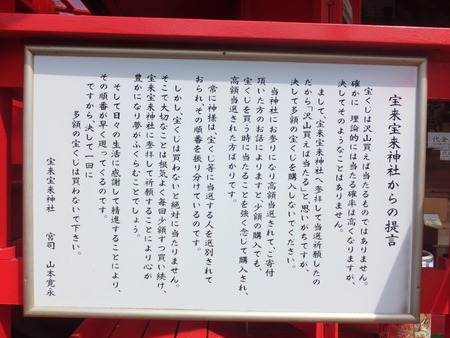 宝来宝来神社からの提言
宝くじは沢山買えば当たるものではありません。
確かに 理論的には当たる確率は高くなりますが、
決してそのようなことはありません。
まして、宝来宝来神社へ参拝して当選祈願したの
だから「沢山買えば当たる」と思いがちですが、
決して多額の宝くじを購入しないでください。
当神社にお参りになり高額当選されて、ご寄付
頂いた方のお話によりますと、少額の購入でも、
宝くじを買う時に当たることを強く念じて購入され、
高額当選された方ばかりです。
常に神様は、宝くじ等に当選する人を選別されて
おられ、その順番を振り分けているのです。
しかし、宝くじは買わないと絶対に当たりません。
そこで大切なことは根気よく毎回少額ずつ買い続け、
宝来宝来神社に参拝して祈願することにより心が
豊かになり夢がふくらむことでしょう。
そして日々の生活に感謝して精進することにより、
その順番が早く廻ってくるのです。
ですから、決して一回に
多額の宝くじは買わないで下さい。
宝来宝来神社 宮司 山本寛永